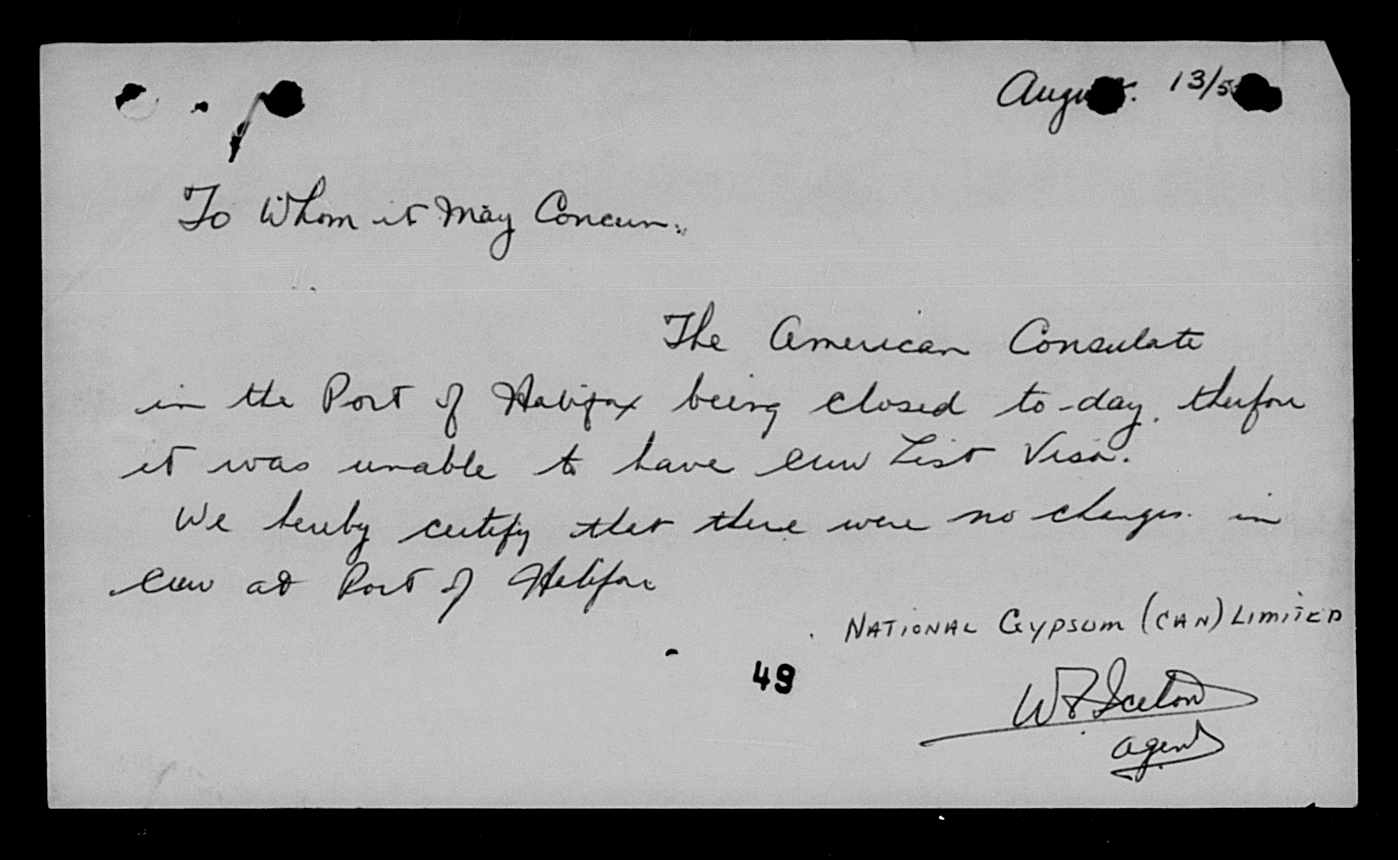 August. 13/5
To Whom it May Concern:
The American Consulate
in the Port of Halifax being closed to-day, therfore
it was unable to have Crew List Visa.
We hereby certify that there were no changes in
Crew at Port of Halifax
NATIONAL GYPSUM (CAN) LIMITED
49
W F
Agent